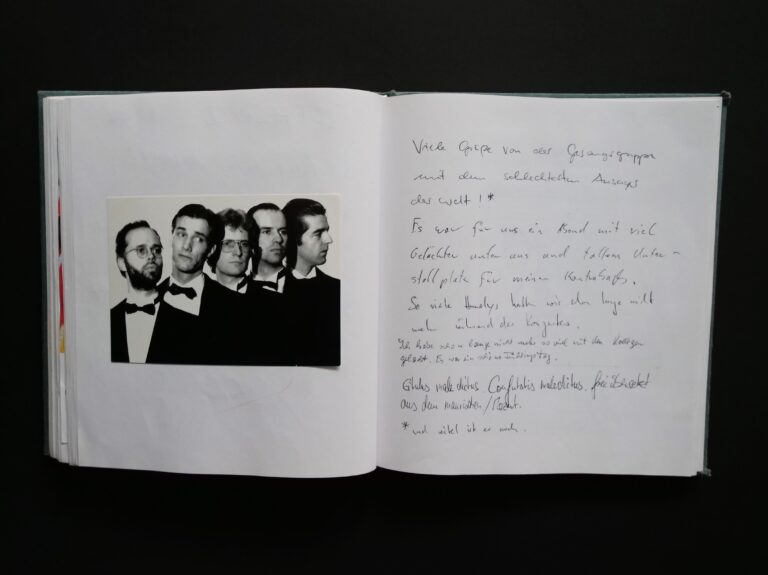 Viele Grüße von der Gesangsgruppe
mit dem schlechtesten Ansager
der Welt! *
Es war für uns ein Abend mit viel
Gelächter unter uns und tollem Unter-
stellplatz für meinen Kontrabaß.
So viele Handys hatten wir schon lange nicht
mehr während des Konzertes.
Ich habe schon lange nicht mehr so viel mit den Kollegen
gelacht. Es war ein schöner
maledictus. Confutatis maledictus, frei übersetzt
aus dem /Mozart.
* und eitel ist er auch.